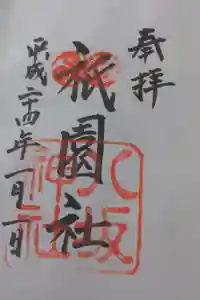 奉拝
祇園社
八坂神社
平成二十四年一月一日